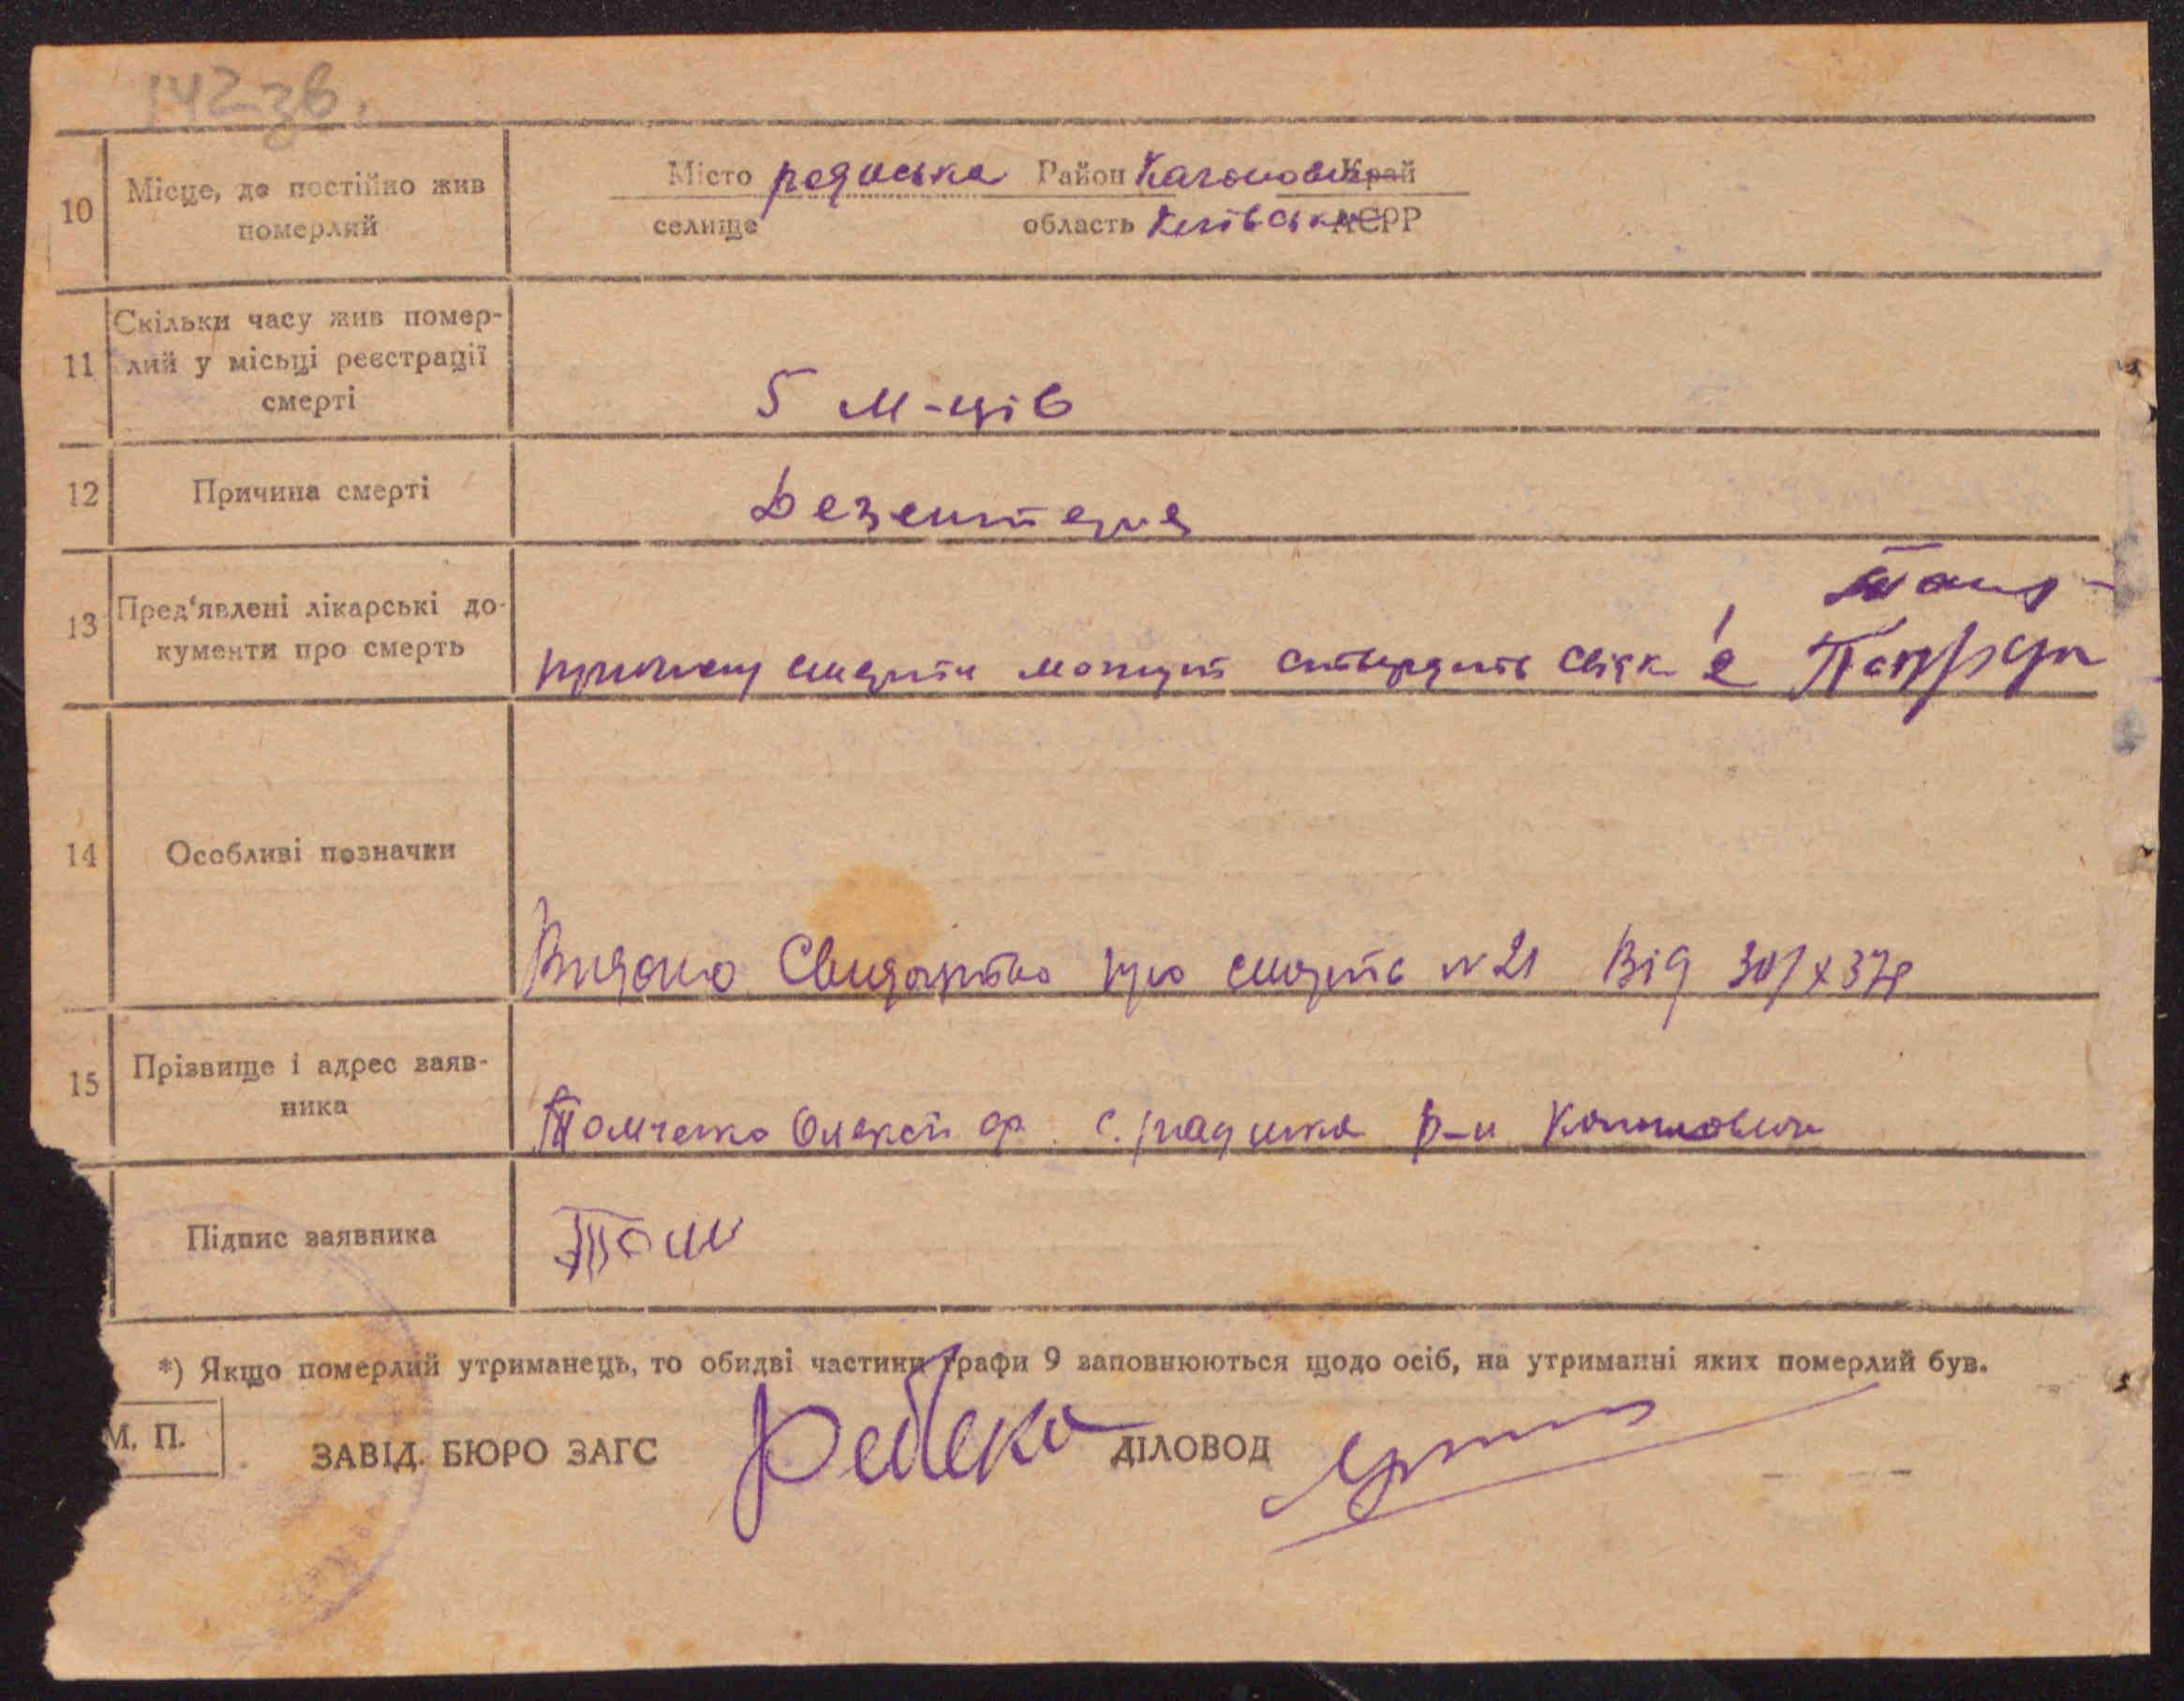 142 зв.
10 Місце, де постійно жив померлий
Місто Район Край
селище область Київська АСРР
11 Скільки часу жив помер-
лий у місьці реєстрації
смерті
5 м-ців
12 Причина смерті
Дезентерия
13 Пред‘явлені лікарські до-
кументи про смерть
причину смерти можут ствердить свідк
14 Особливі позначки
Видано Свидоцтво про смерть № 21 Від 30/X 37р
15 Прізвище і адрес заяв-
ника
Томченко Олексій с. р-н
Підпис заявника
Том
*) Якщо померлий утриманець, то обидві частини графи 9 заповнюються щодо осіб, на утриманні яких померлий був.
М. П.
ЗАВІД. БЮРО ЗАГС ДІЛОВОД